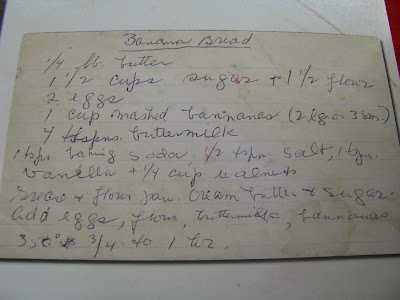 Banana Bread
1/4 lb. butter
1 1/2 cups sugar + 1 1/2 flour
2 eggs
1 cup mashed bannanas (2 lg or 3 sm.)
4 tspns. buttermilk
1 tspn. baking soda, 1/2 tspn. salt, 1 tspn.
vanilla + 1/4 cup walnuts
Grease + flour pan. Cream butter + sugar.
Add eggs, flour, buttermilk, bannanas
350° 3/4 to 1 hr.